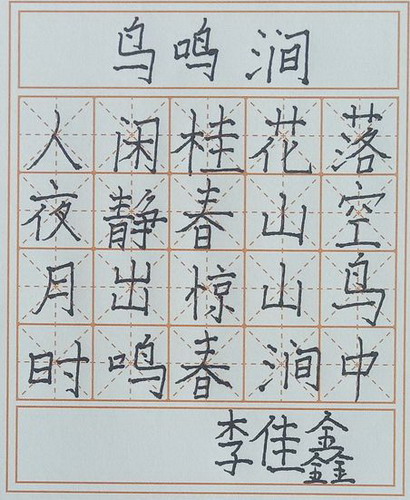 鸟鸣涧
人闲桂花落
夜静春山空
月出惊山鸟
时鸣春涧中
李佳鑫